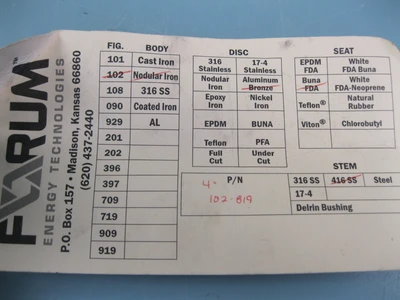 FORUM™
ENERGY TECHNOLOGIES
P.O. Box 157 • Madison, Kansas 66860
(620) 437-2440
FIG. BODY
101 Cast Iron
102 Nodular Iron
108 316 SS
090 Coated Iron
929 AL
201
202
396
397
709
719
909
919
DISC
316 Stainless 17-4 Stainless
Nodular Iron Aluminum Bronze
Epoxy Iron Nickel Iron
EPDM BUNA
Teflon PFA
Full Cut Under Cut
SEAT
EPDM FDA White FDA Buna
Buna FDA White FDA-Neoprene
Teflon® Natural Rubber
Viton® Chlorobutyl
P/N
4"
102-819
STEM
316 SS 416 SS Steel
17-4
Delrin Bushing